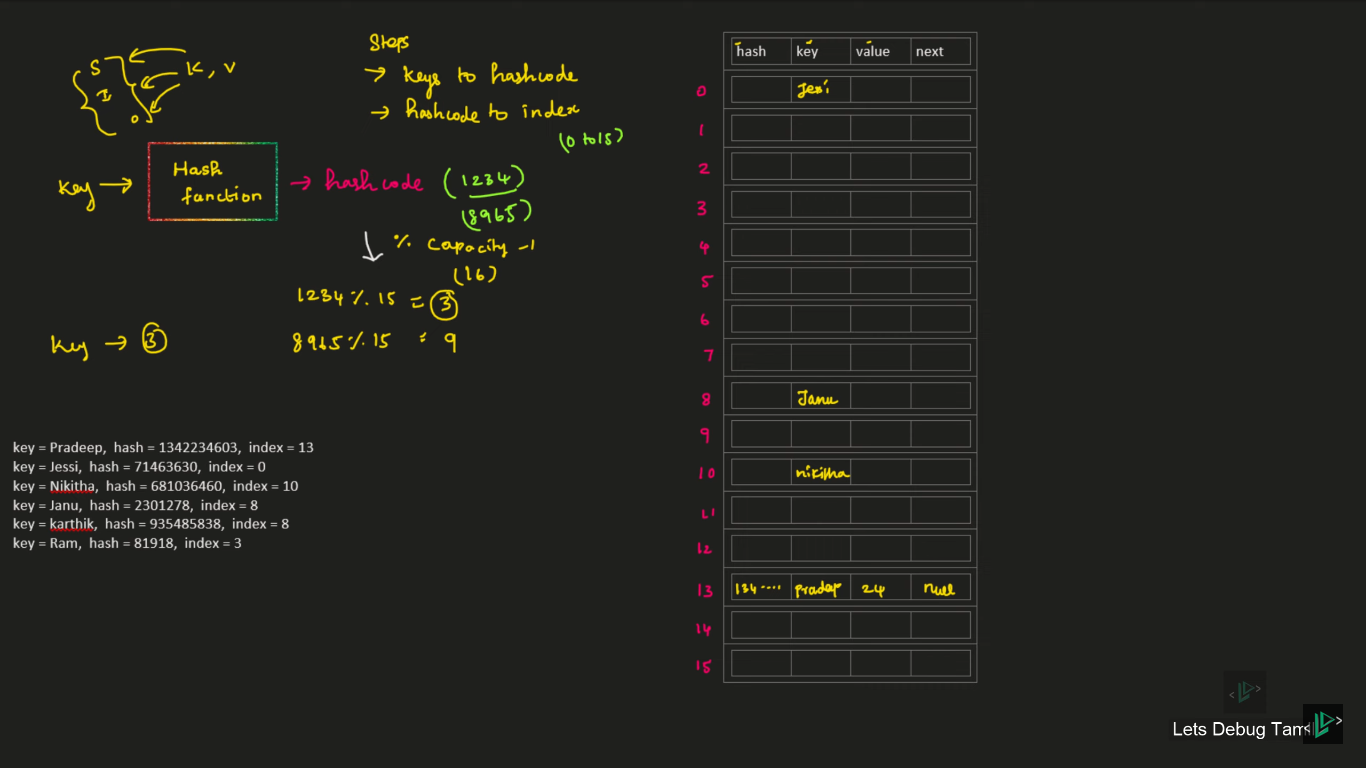 S
I
O
K, V
Steps
→ keys to hashcode
→ hashcode to index
(0 to 15)
Key →
Hash
function
→ hashcode (1234)
(8965)
% Capacity -1
(16)
1234 % 15 = 3
8965 % 15 = 9
Key → 3
key = Pradeep, hash = 1342234603, index = 13
key = Jessi, hash = 71463630, index = 0
key = Nikitha, hash = 681036460, index = 10
key = Janu, hash = 2301278, index = 8
key = karthik, hash = 935485838, index = 8
key = Ram, hash = 81918, index = 3
hash key value next
0 Jessi
1
2
3
4
5
6
7
8 Janu
9
10 nikitha
11
12
13 134.... pradeep 24 null
14
15
Lets Debug Tamil